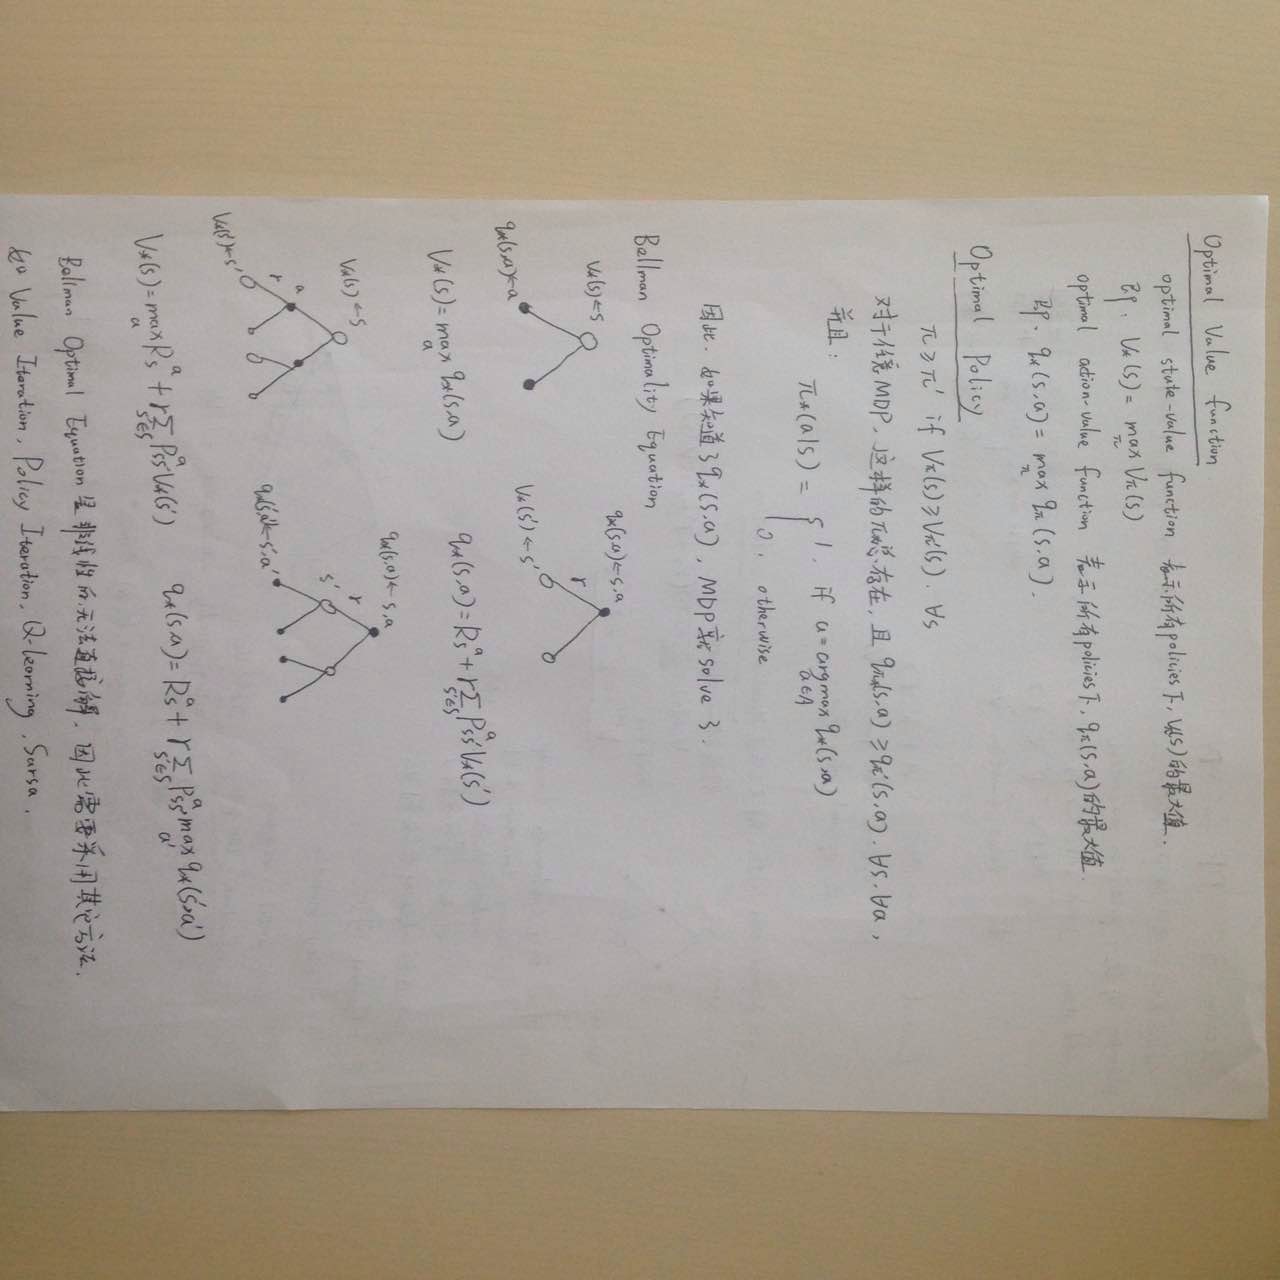 Optimal Value function
optimal state-value function 表示所有policies下, Vπ(s)的最大值.
即. V*(s) = max_π Vπ(s)
optimal action-value function 表示所有policies下, qπ(s,a)的最大值.
即. q*(s,a) = max_π qπ(s,a).
Optimal Policy
π ≥ π' if Vπ(s) ≥ Vπ'(s). ∀s
对于任意MDP, 这样的π*总存在, 且 qπ*(s,a) ≥ qπ'(s,a). ∀s. ∀a,
并且:
π*(a|s) = { 1. if a = argmax_{a∈A} q*(s,a)
0. otherwise
因此. 如果知道了q*(s,a), MDP就solve了.
Bellman Optimality Equation
q*(s,a) ← s,a
V*(s) ← s
r
V*(s') ← s'
q*(s,a) ← a
q*(s,a) = R_s^a + γ Σ_{s'∈S} P_{ss'}^a V*(s')
V*(s) = max_a q*(s,a)
q*(s,a) ← s,a
V*(s) ← s
r
s'
a
r
q*(s',a') ← s',a'
V*(s') ← s'
q*(s,a) = R_s^a + γ Σ_{s'∈S} P_{ss'}^a max_{a'} q*(s',a')
V*(s) = max_a R_s^a + γ Σ_{s'∈S} P_{ss'}^a V*(s')
Bellman Optimal Equation 是非线性的, 无法直接解, 因此需要采用其它方法.
如 Value Iteration, Policy Iteration, Q-learning, Sarsa.